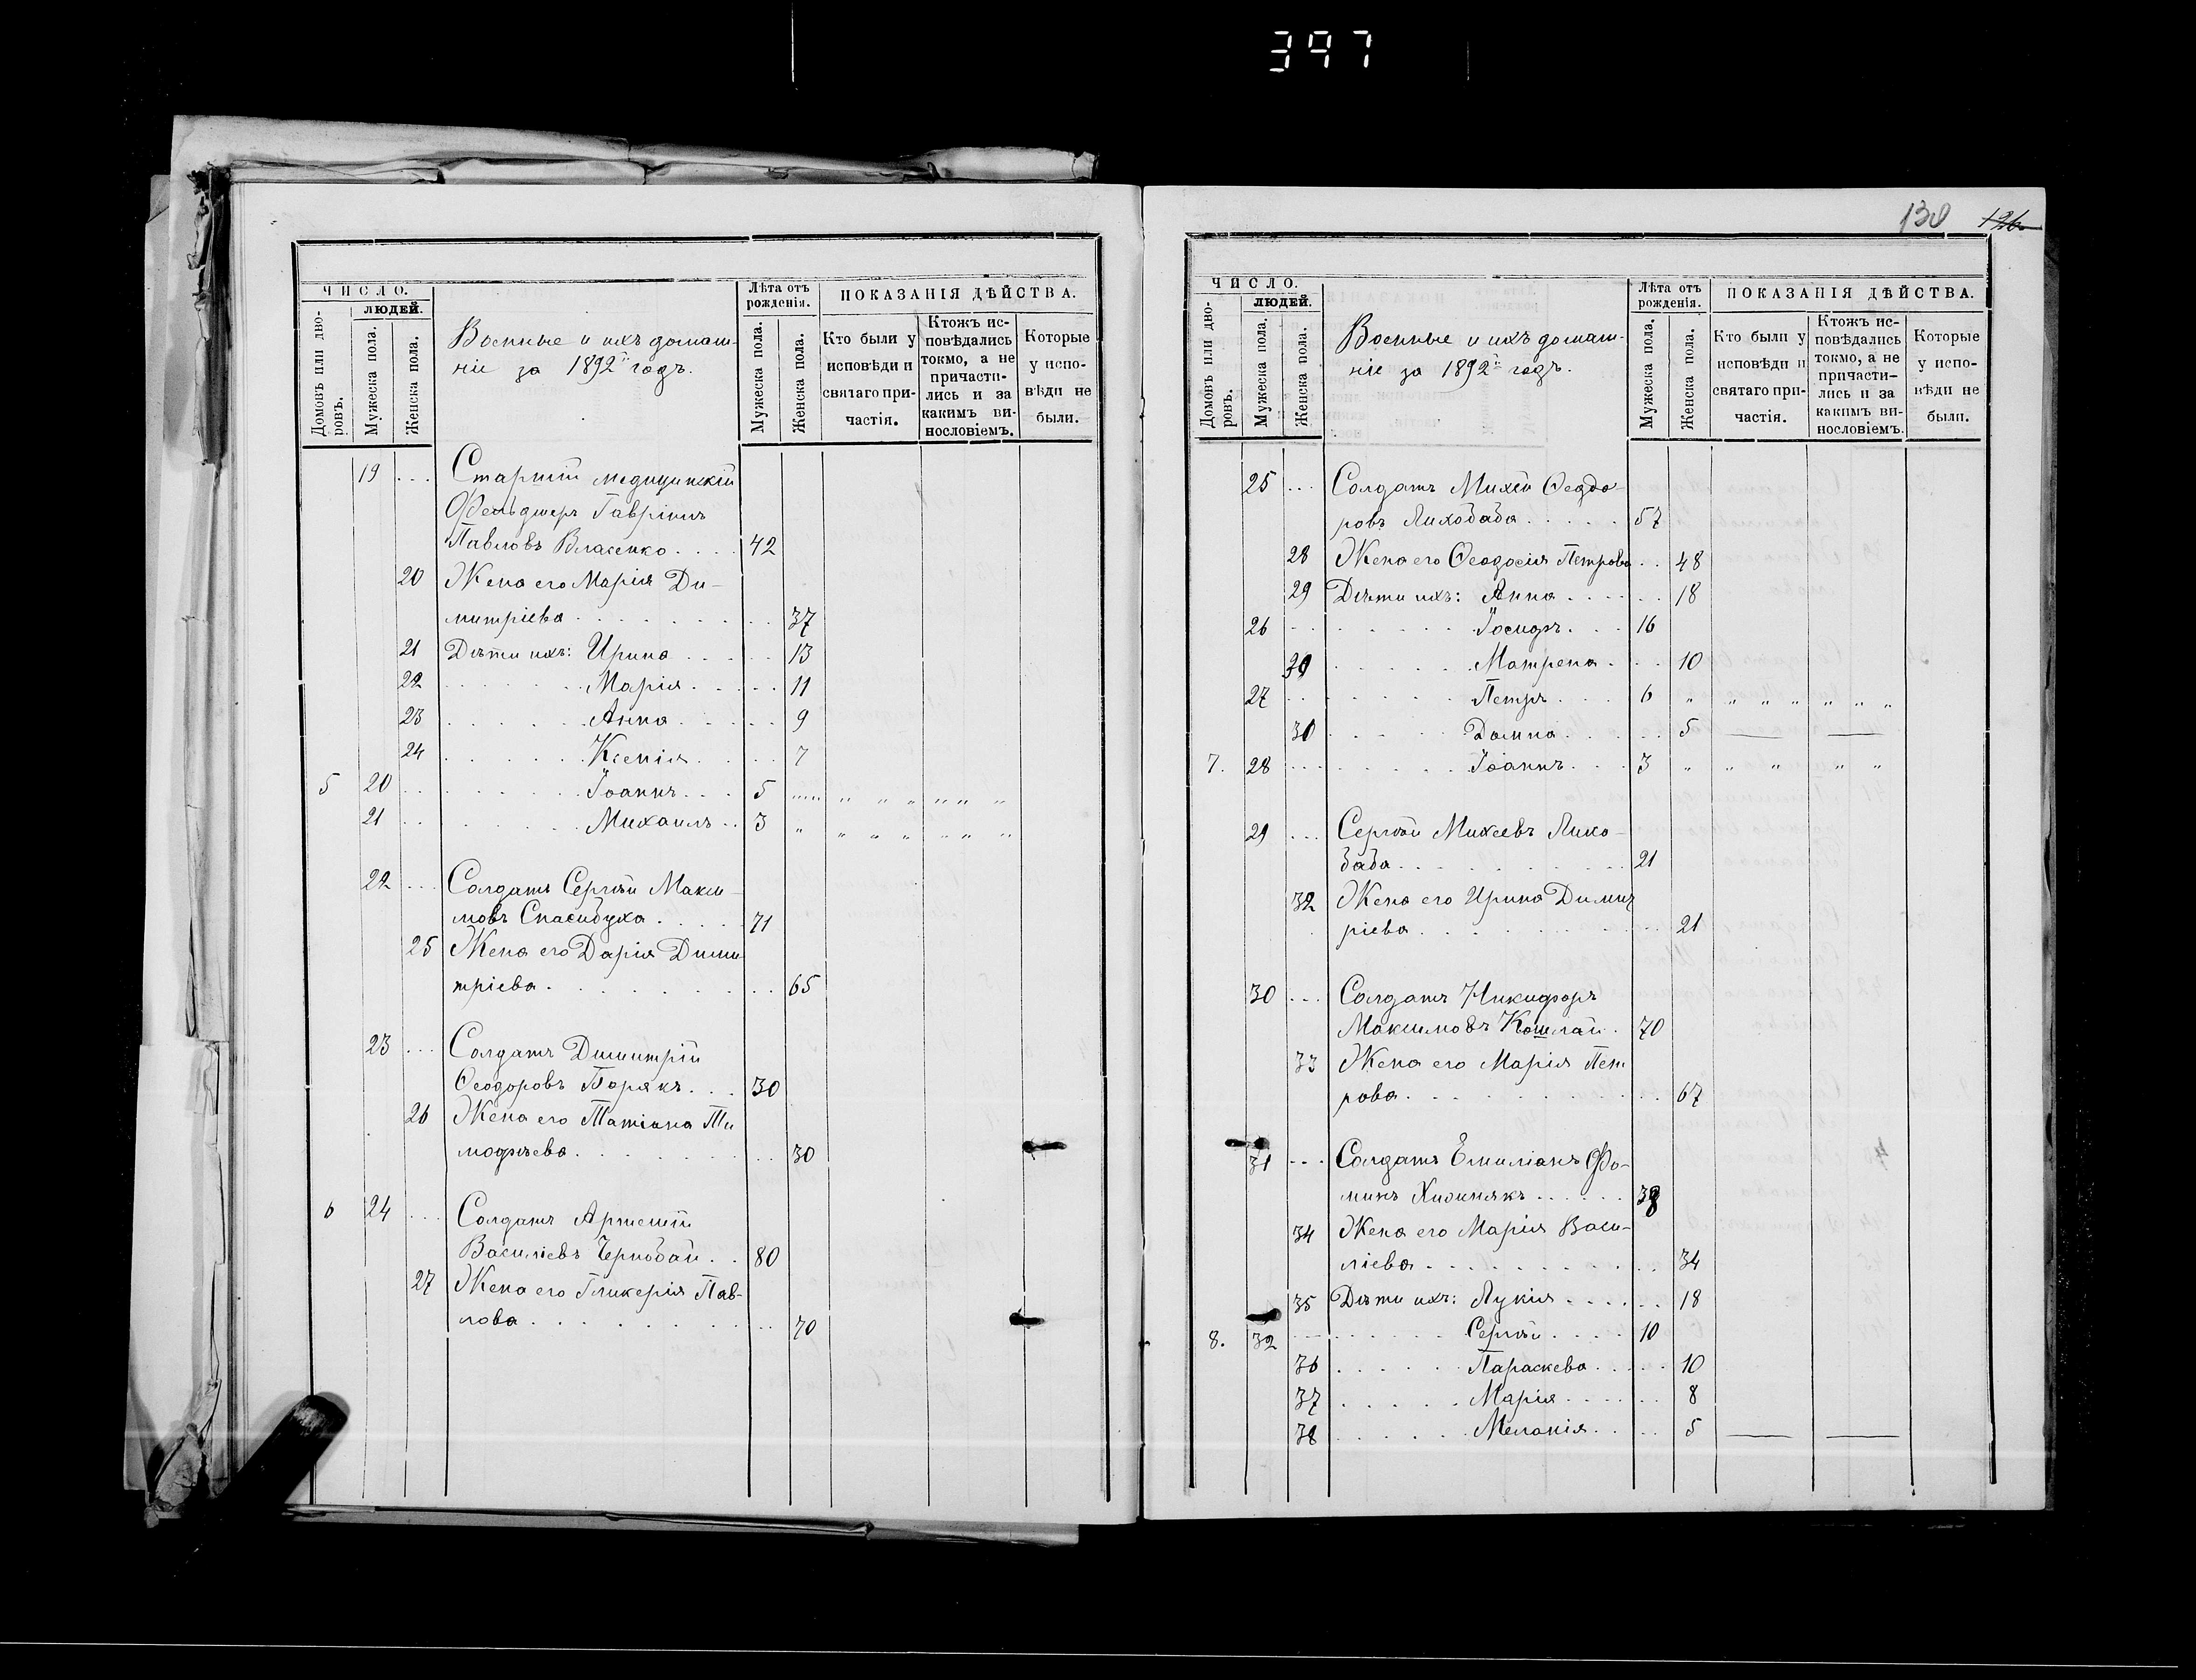 397
ЧИСЛО.
Домовъ или дво-
ровъ.
людей.
Мужеска пола.
Женска пола.
Военные и ихъ домаш-
ніе за 1892й годъ.
Лѣта отъ
рожденія.
Мужеска пола.
Женска пола.
ПОКАЗАНІЯ ДѢЙСТВА.
Кто были у
исповѣди и
святаго при-
частія.
Ктожъ ис-
повѣдались
токмо, а не
причасти-
лись и за
какимъ ви-
нословіемъ.
Которые
у испо-
вѣди не
были.
19 ... Старшій медицинскій
Фельдшеръ Гавріилъ
Павловъ Власенко .... 42
20 Жена его Марія Ди-
митріева ........ 37
21 Дѣти ихъ: Ирина ..... 13
22 ...... Марія ..... 11
23 ...... Анна ..... 9
24 ...... Ксенія .... 7
5 20 ....... Іоаннъ ... 5 „ „ „ „ „ „ „
21 ....... Михаилъ .. 3 „ „ „ „ „ „ „
22 ... Солдатъ Сергѣй Макси-
мовъ Спасибуха ..... 71
25 Жена его Дарія Дими
тріева ......... 65
23 ... Солдатъ Димитрій
Ѳеодоровъ Порякъ ... 30
26 Жена его Татіана Ти
моѳѣева ........ 30
6 24 ... Солдатъ Артемій
Василіевъ Чернобай .. 80
27 Жена его Гликерія Пав-
лова ......... 70
130 126
ЧИСЛО.
Домовъ или дво-
ровъ.
людей.
Мужеска пола.
Женска пола.
Военные и ихъ домаш-
ніе за 1892й годъ.
Лѣта отъ
рожденія.
Мужеска пола.
Женска пола.
ПОКАЗАНІЯ ДѢЙСТВА.
Кто были у
исповѣди и
святаго при-
частія.
Ктожъ ис-
повѣдались
токмо, а не
причасти-
лись и за
какимъ ви-
нословіемъ.
Которые
у испо-
вѣди не
были.
25 ... Солдатъ Михей Ѳеодо-
ровъ Лихобаба ..... 57
28 Жена его Ѳеодосія Петрова .. 48
29 Дѣти ихъ: Анна ...... 18
26 ........ Іосифъ ... 16
30 ...... Матрена ... 10
27 ........ Петръ ... 6 „ „ „ „ „ „ „
30 ..... Домна ..... 5
7. 28 ........ Іоаннъ ... 3 „ „ „ „ „
29 ... Сергѣй Михеевъ Лихо-
баба .......... 21
32 Жена его Ирина Димит
ріева .......... 21
30 ... Солдатъ Никифоръ
Максимовъ Кошлай . 70
33 Жена его Марія Пет
рова .......... 67
31 ... Солдатъ Емиліанъ Фо-
минъ ...... 38
34 Жена его Марія Васи-
ліева .......... 34
35 Дѣти ихъ: Лукія ...... 18
8. 32 ....... Сергѣй .... 10
36 ...... Параскева ..... 10
37 ...... Марія ...... 8
38 ...... Меланія .... 5